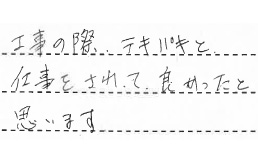 工事の際、テキパキと
仕事をされて、良かったと
思います